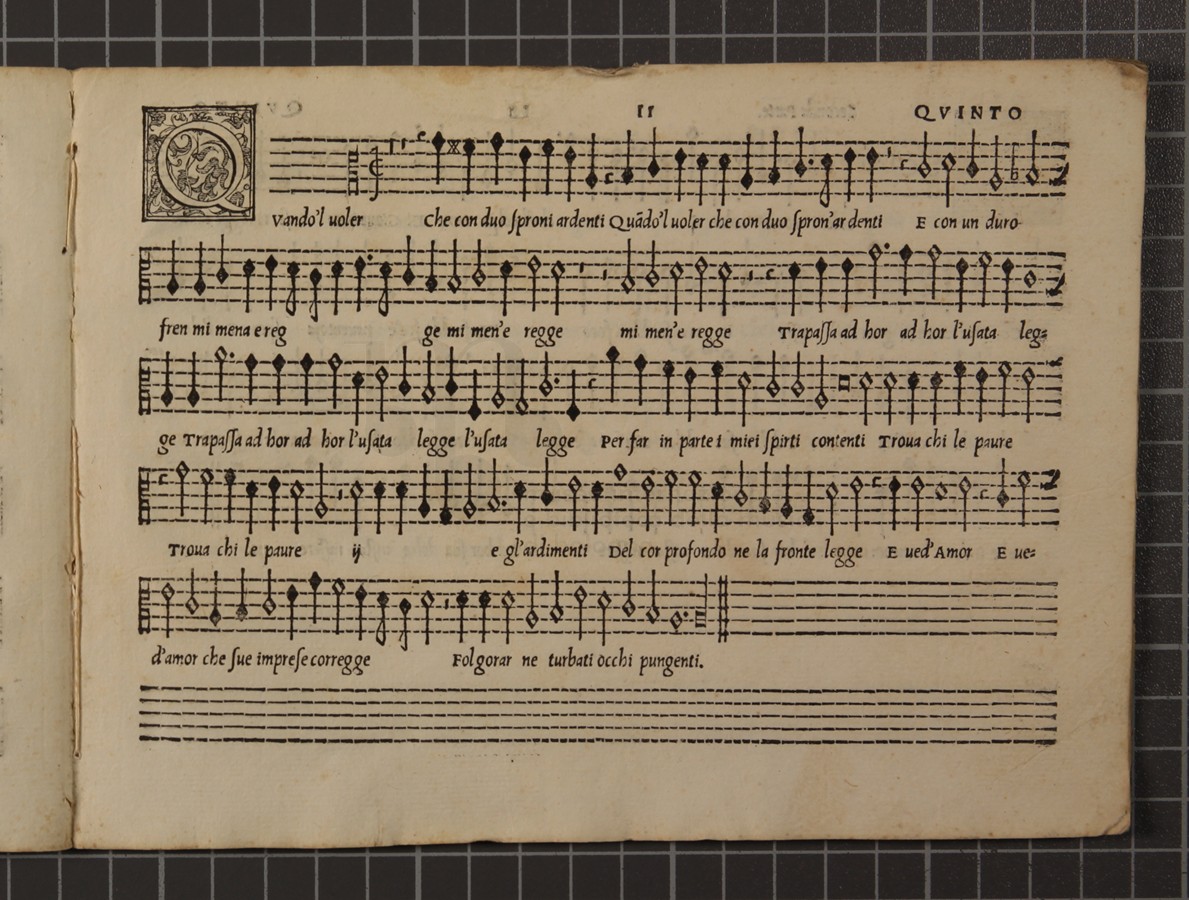 II QVINTO
QVando'l uoler Che con duo ſproni ardenti Quādo'l uoler che con duo ſpron'ar denti E con un duro
fren mi mena e reg ge mi men'e regge mi men'e regge Trapaſſa ad hor ad hor l'uſata leg=
ge Trapaſſa ad hor ad hor l'uſata legge l'uſata legge Per far in parte i miei ſpirti contenti Troua chi le paure
Troua chi le paure ij e gl'ardimenti Del cor profondo ne la fronte legge E ued'Amor E ue=
d'amor che ſue impreſe corregge Folgorar ne turbati occhi pungenti.